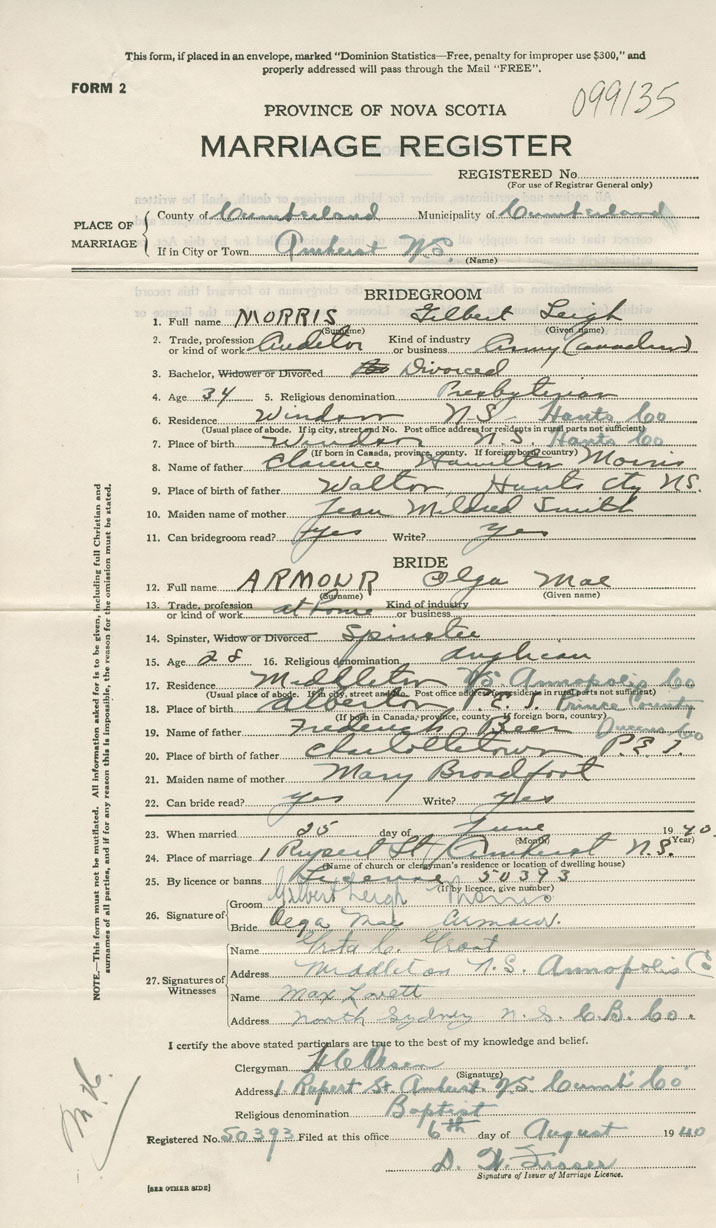 This form, if placed in an envelope, marked "Dominion Statistics—Free, penalty for improper use $300," and
properly addressed will pass through the Mail "FREE".
FORM 2
099135
PROVINCE OF NOVA SCOTIA
MARRIAGE REGISTER
REGISTERED No
(For use of Registrar General only)
PLACE OF MARRIAGE
County of Cumberland Municipality of Cumberland
If in City or Town Amherst N.S.
(Name)
BRIDEGROOM
1. Full name MORRIS Gilbert Leigh
(Surname) (Given name)
2. Trade, profession or kind of work Auditor Kind of industry or business Army (Canadian)
3. Bachelor, Widower or Divorced Divorced
4. Age 34 5. Religious denomination Presbyterian
6. Residence Windsor N.S. Hants Co
(Usual place of abode. If in city, street and No. Post office address for residents in rural parts not sufficient)
7. Place of birth Windsor N.S. Hants Co
(If born in Canada, province, county. If foreign born, country)
8. Name of father Clarence Hamilton Morris
9. Place of birth of father Walton Hants Cty N.S.
10. Maiden name of mother Jean Mildred Smith
11. Can bridegroom read? yes Write? yes
BRIDE
12. Full name ARMOUR Olga Mae
(Surname) (Given name)
13. Trade, profession or kind of work at home Kind of industry or business
14. Spinster, Widow or Divorced Spinster
15. Age 28 16. Religious denomination Anglican
17. Residence Middleton NS. Annapolis Co
(Usual place of abode. If in city, street and No. Post office address for residents in rural parts not sufficient)
18. Place of birth Alberton P.E.I. Prince County
(If born in Canada, province, county. If foreign born, country)
19. Name of father Frederick Beer Queens Co
20. Place of birth of father Charlottetown P.E.I.
21. Maiden name of mother Mary Broadfoot
22. Can bride read? yes Write? yes
23. When married 25 day of June 1940
(Month) (Year)
24. Place of marriage 1 Rupert St Amherst N.S.
(Name of church or clergyman's residence or location of dwelling house)
25. By licence or banns License 50393
(If by licence, give number)
26. Signature of
Groom Gilbert Leigh Morris
Bride Olga Mae Armour.
27. Signatures of Witnesses
Name Greta C. Grant
Address Middleton N.S. Annapolis C
Name Max Lovett
Address North Sydney N.S. C.B. Co.
I certify the above stated particulars are true to the best of my knowledge and belief.
Clergyman
(Signature)
Address 1 Rupert St. Amherst NS Cumb' Co
Religious denomination Baptist
Registered No. 50393 Filed at this office 6th day of August 1940
D. W. Fraser
Signature of Issuer of Marriage Licence.
[SEE OTHER SIDE]
NOTE.—This form must not be mutilated. All information asked for is to be given, including full Christian and
surnames of all parties, and if for any reason this is impossible, the reason for the omission must be stated.